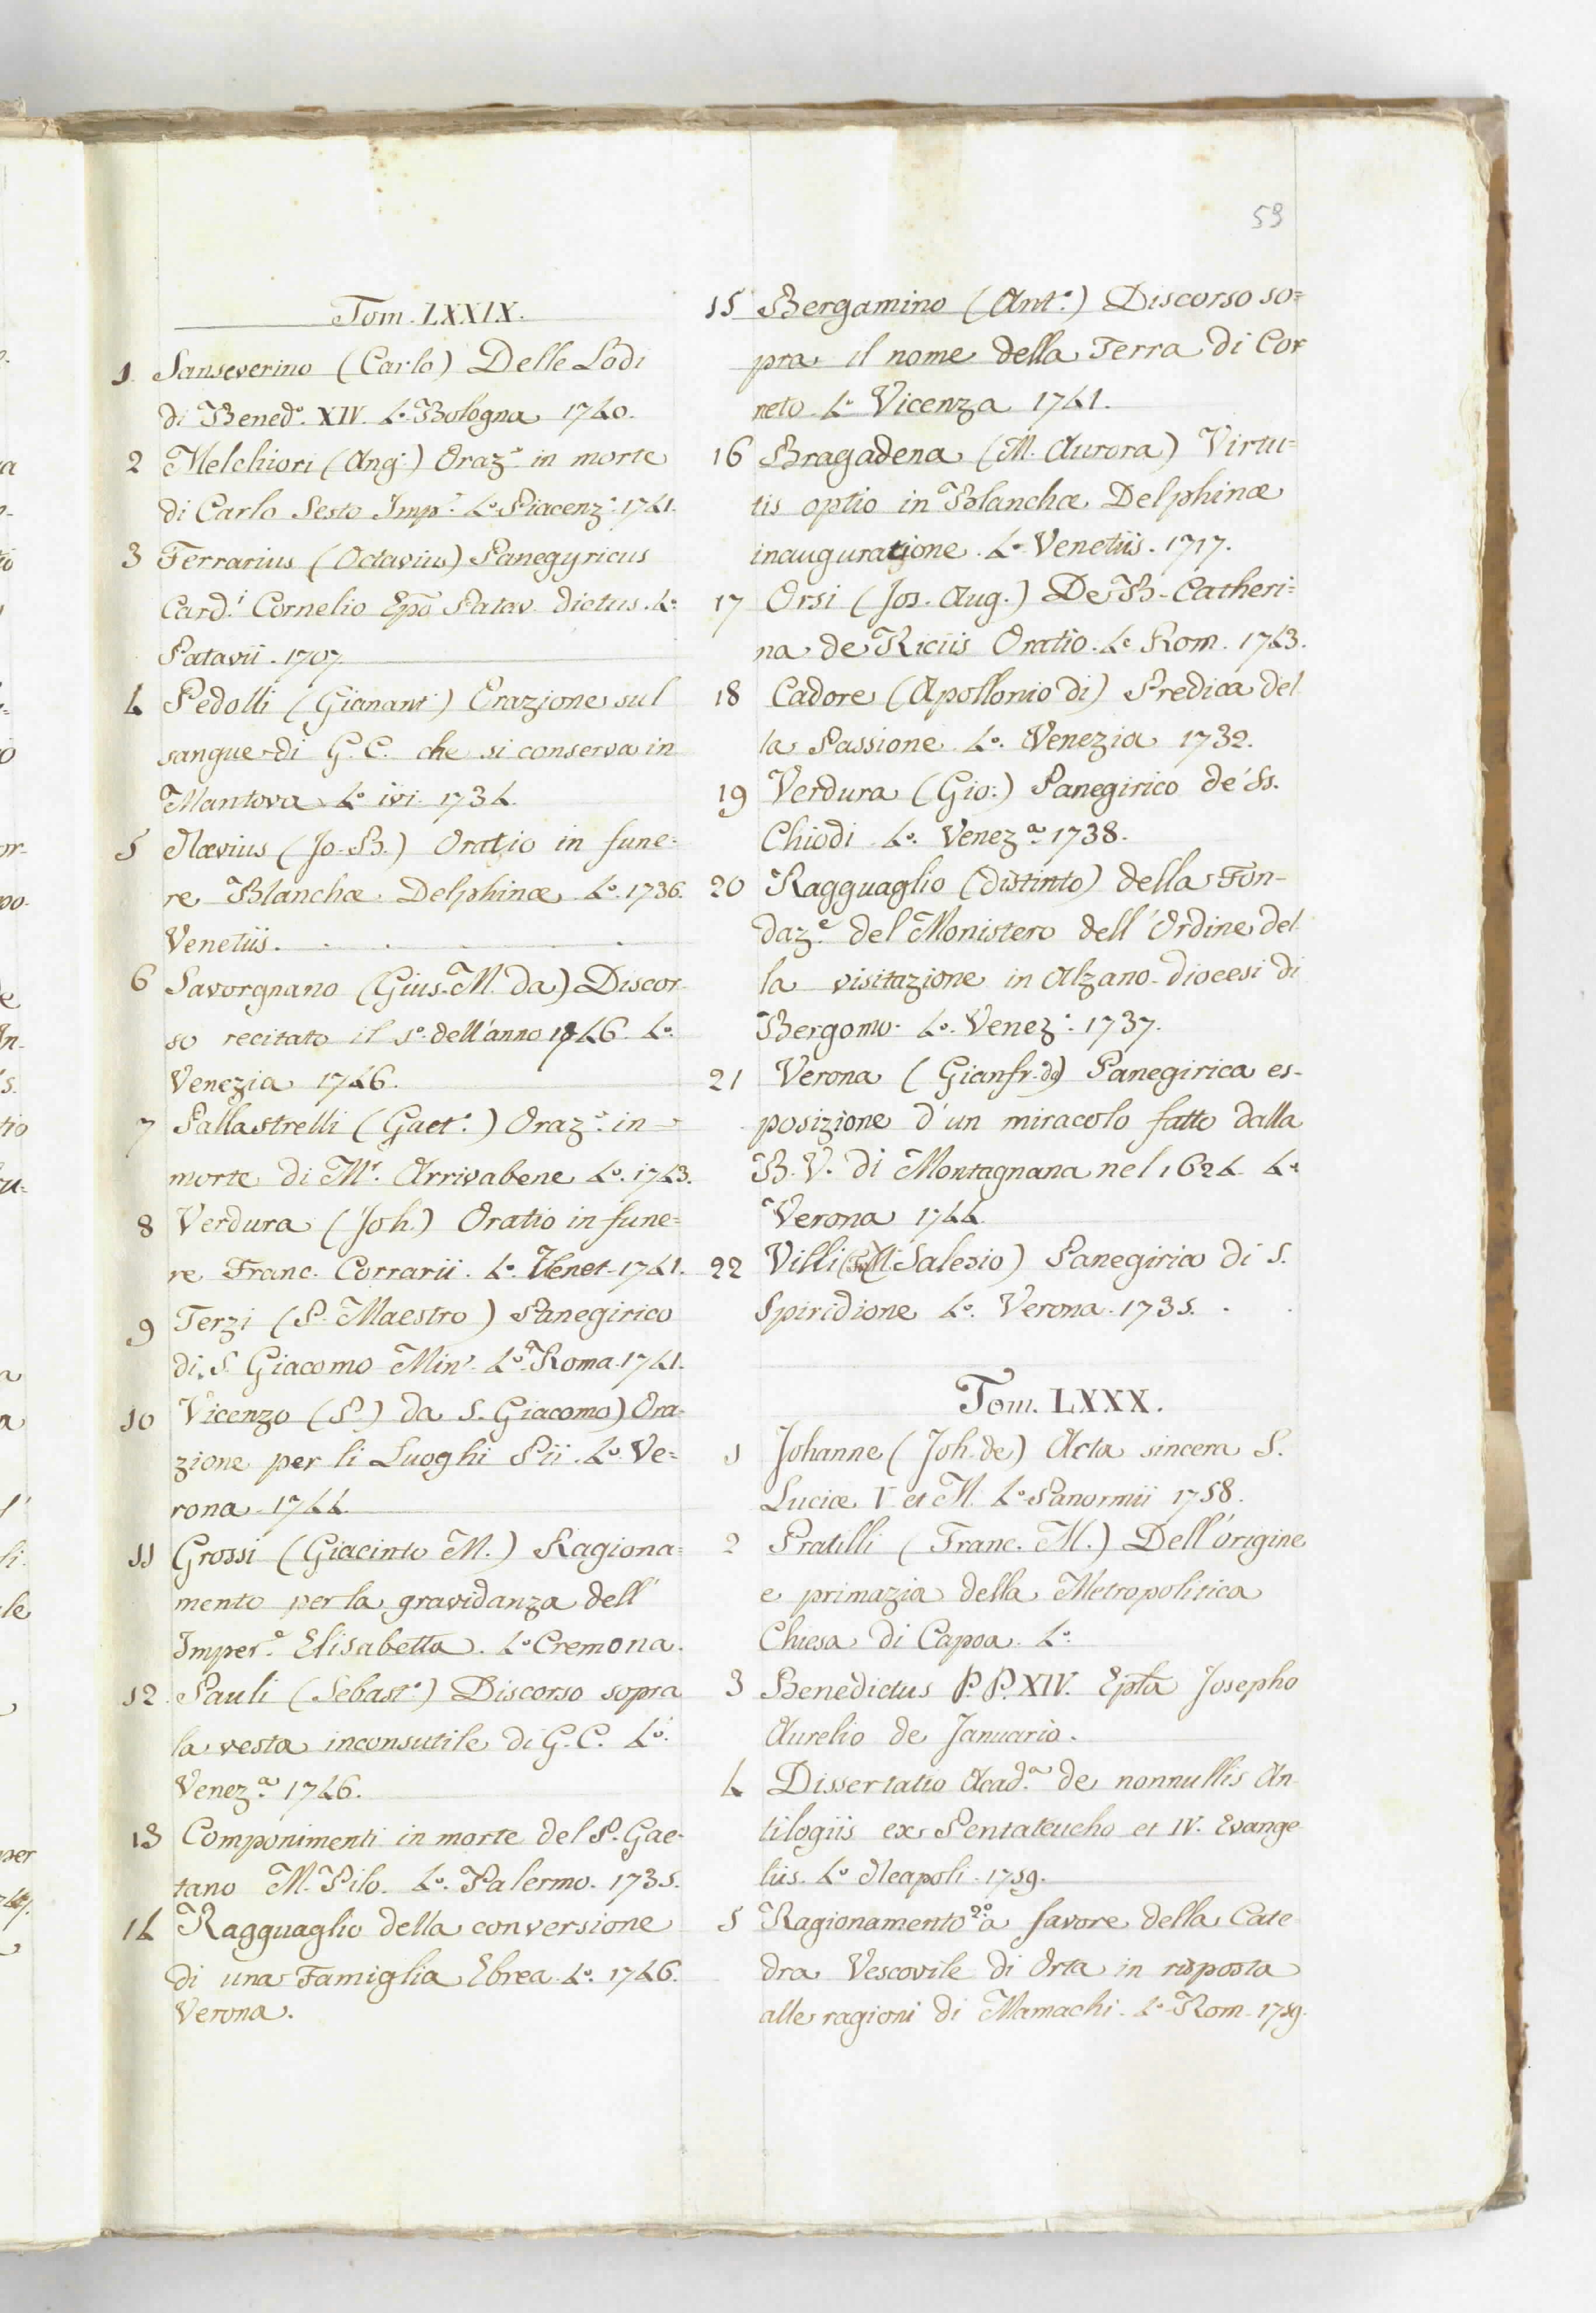 59
Tom. LXXIX.
1 Sanseverino (Carlo) Delle Lodi
di Bened.º XIV. 4.º Bologna 1740.
2 Melchiori (Ang.) Oraz.e in morte
di Carlo Sesto Imp.e 4.º Piacenz.a 1741.
3 Ferrarius (Octavius) Panegyricus
Card.i Cornelio Epõ Patav. dictus. 4.º
Patavii. 1707.
4 Pedolli (Gianant.) Orazione sul
sangue di G. C. che si conserva in
Mantova 4.º ivi 1734.
5 Nævius (Jo. B.) Oratio in fune=
re Blanchæ Delphinæ 4.º 1736.
Venetiis.
6 Savorgnano (Gius. M. da) Discor-
so recitato il 1.º dell'anno 1746. 4.º
Venezia 1746.
7 Pallastrelli (Gaet.º) Oraz.e in
morte di M.r Arrivabene 4.º 1743.
8 Verdura (Joh.) Oratio in fune=
re Franc. Corrarii. 4.º Venet. 1741.
9 Terzi (P. Maestro) Panegirico
di S. Giacomo Min.r 4.º Roma 1741.
10 Vicenzo (P.) da S. Giacomo) Ora-
zione per li Luoghi Pii. 4.º Ve=
rona 1744.
11 Grossi (Giacinto M.) Ragiona=
mento per la gravidanza dell'
Imper.e Elisabetta. 4.º Cremona.
12 Pauli (Sebast.º) Discorso sopra
la vesta inconsutile di G. C. 4.º
Venez.a 1746.
13 Componimenti in morte del P. Gae-
tano M. Pilo. 4.º Palermo. 1735.
14 Ragguaglio della conversione
di una Famiglia Ebrea 4.º 1746.
Verona.
15 Bergamino (Ant.º) Discorso so=
pra il nome della Terra di Cor
neto 4.º Vicenza 1741.
16 Bragadena (M. Aurora) Virtu=
tis optio in Blanchæ Delphinæ
inauguratione. 4.º Venetiis. 1717.
17 Orsi (Jos. Aug.) De B. Catheri=
na de Riciis Oratio. 4.º Rom. 1743.
18 Cadore (Apollonio di) Predica del
la Passione. 4.º Venezia 1732.
19 Verdura (Gio:) Panegirico de' Ss.
Chiodi 4.º Venez.a 1738.
20 Ragguaglio (distinto) della Fon-
daz.e del Monistero dell'Ordine del
la visitazione in Alzano diocesi di
Bergomo. 4.º Venez.a 1737.
21 Verona (Gianfr. da) Panegirica es-
posizione d'un miracolo fatto dalla
B. V. di Montagnana nel 1624 4.º
Verona 1744.
22 Villi ( M. Salesio) Panegirico di S.
Spiridione 4.º Verona 1735.
Tom. LXXX.
1 Johanne (Joh. de) Acta sincera S.
Luciæ V. et M. 4.º Panormii 1758.
2 Pratilli (Franc. M.) Dell'origine
e primazia della Metropolitica
Chiesa di Capoa. 4.º
3 Benedictus P. P. XIV. Eptã Josepho
Aurelio de Januario.
4 Dissertatio Acad.a de nonnullis An
tilogiis ex Pentateucho et IV. Evange
liis. 4.º Neapoli. 1759.
5 Ragionamento 2.º a favore della Cate
dra Vescovile di Orta in risposta
alle ragioni di Mamachi. 4.º Rom. 1759.